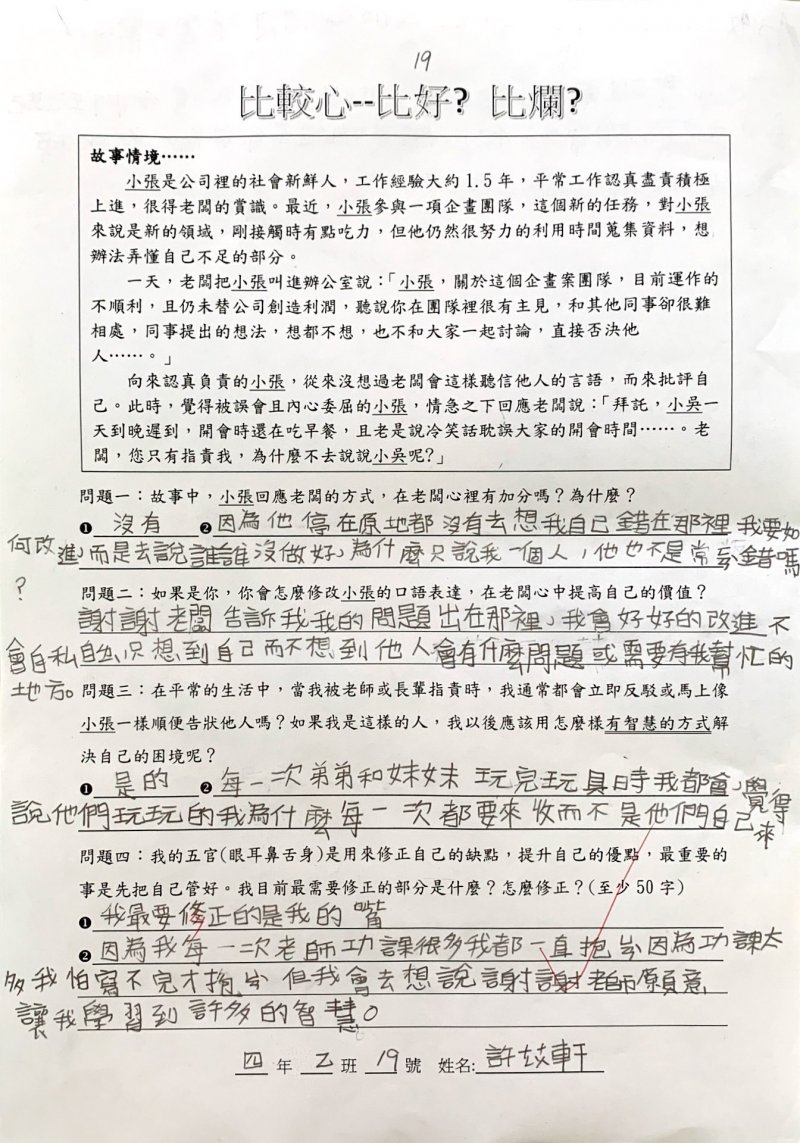 19
比較心--比好？比爛？
故事情境……
小張是公司裡的社會新鮮人，工作經驗大約1.5年，平常工作認真盡責積極
上進，很得老闆的賞識。最近，小張參與一項企畫團隊，這個新的任務，對小張
來說是新的領域，剛接觸時有點吃力，但他仍然很努力的利用時間蒐集資料，想
辦法弄懂自己不足的部分。
一天，老闆把小張叫進辦公室說：「小張，關於這個企畫案團隊，目前運作的
不順利，且仍未替公司創造利潤，聽說你在團隊裡很有主見，和其他同事卻很難
相處，同事提出的想法，想都不想，也不和大家一起討論，直接否決他
人……。」
向來認真負責的小張，從來沒想過老闆會這樣聽信他人的言語，而來批評自
己。此時，覺得被誤會且內心委屈的小張，情急之下回應老闆說：「拜託，小吳一
天到晚遲到，開會時還在吃早餐，且老是說冷笑話耽誤大家的開會時間……。老
闆，您只有指責我，為什麼不去說說小吳呢?」
問題一：故事中，小張回應老闆的方式，在老闆心裡有加分嗎？為什麼？
❶ 沒有 ❷ 因為他停在原地都沒有去想我自己錯在那裡我要如
何改進，而是去說誰誰沒做好，為什麼只說我一個人，他也不是常錯嗎
？
問題二：如果是你，你會怎麼修改小張的口語表達，在老闆心中提高自己的價值？
謝謝老闆告訴我我的問題出在那裡，我會好好的改進不
會自私自只想到自己而不想到他人會有什麼問題或需要有我幫忙的
地方。
問題三：在平常的生活中，當我被老師或長輩指責時，我通常都會立即反駁或馬上像
小張一樣順便告狀他人嗎？如果我是這樣的人，我以後應該用怎麼樣有智慧的方式解
決自己的困境呢？
❶ 是的 ❷ 每一次弟弟和妹妹玩完玩具時我都會，覺得
說他們玩玩的我為什麼每一次都要來收而不是他們自己來
問題四：我的五官(眼耳鼻舌身)是用來修正自己的缺點，提升自己的優點，最重要的
事是先把自己管好。我目前最需要修正的部分是什麼？怎麼修正？(至少50字)
❶ 我最要修正的是我的嘴
❷ 因為我每一次老師功課很多我都一直抱怨因為功課太
多我怕寫不完才抱怨但我會去想說謝謝老師願意
讓我學習到許多的智慧。
四年乙班19號 姓名:許軒